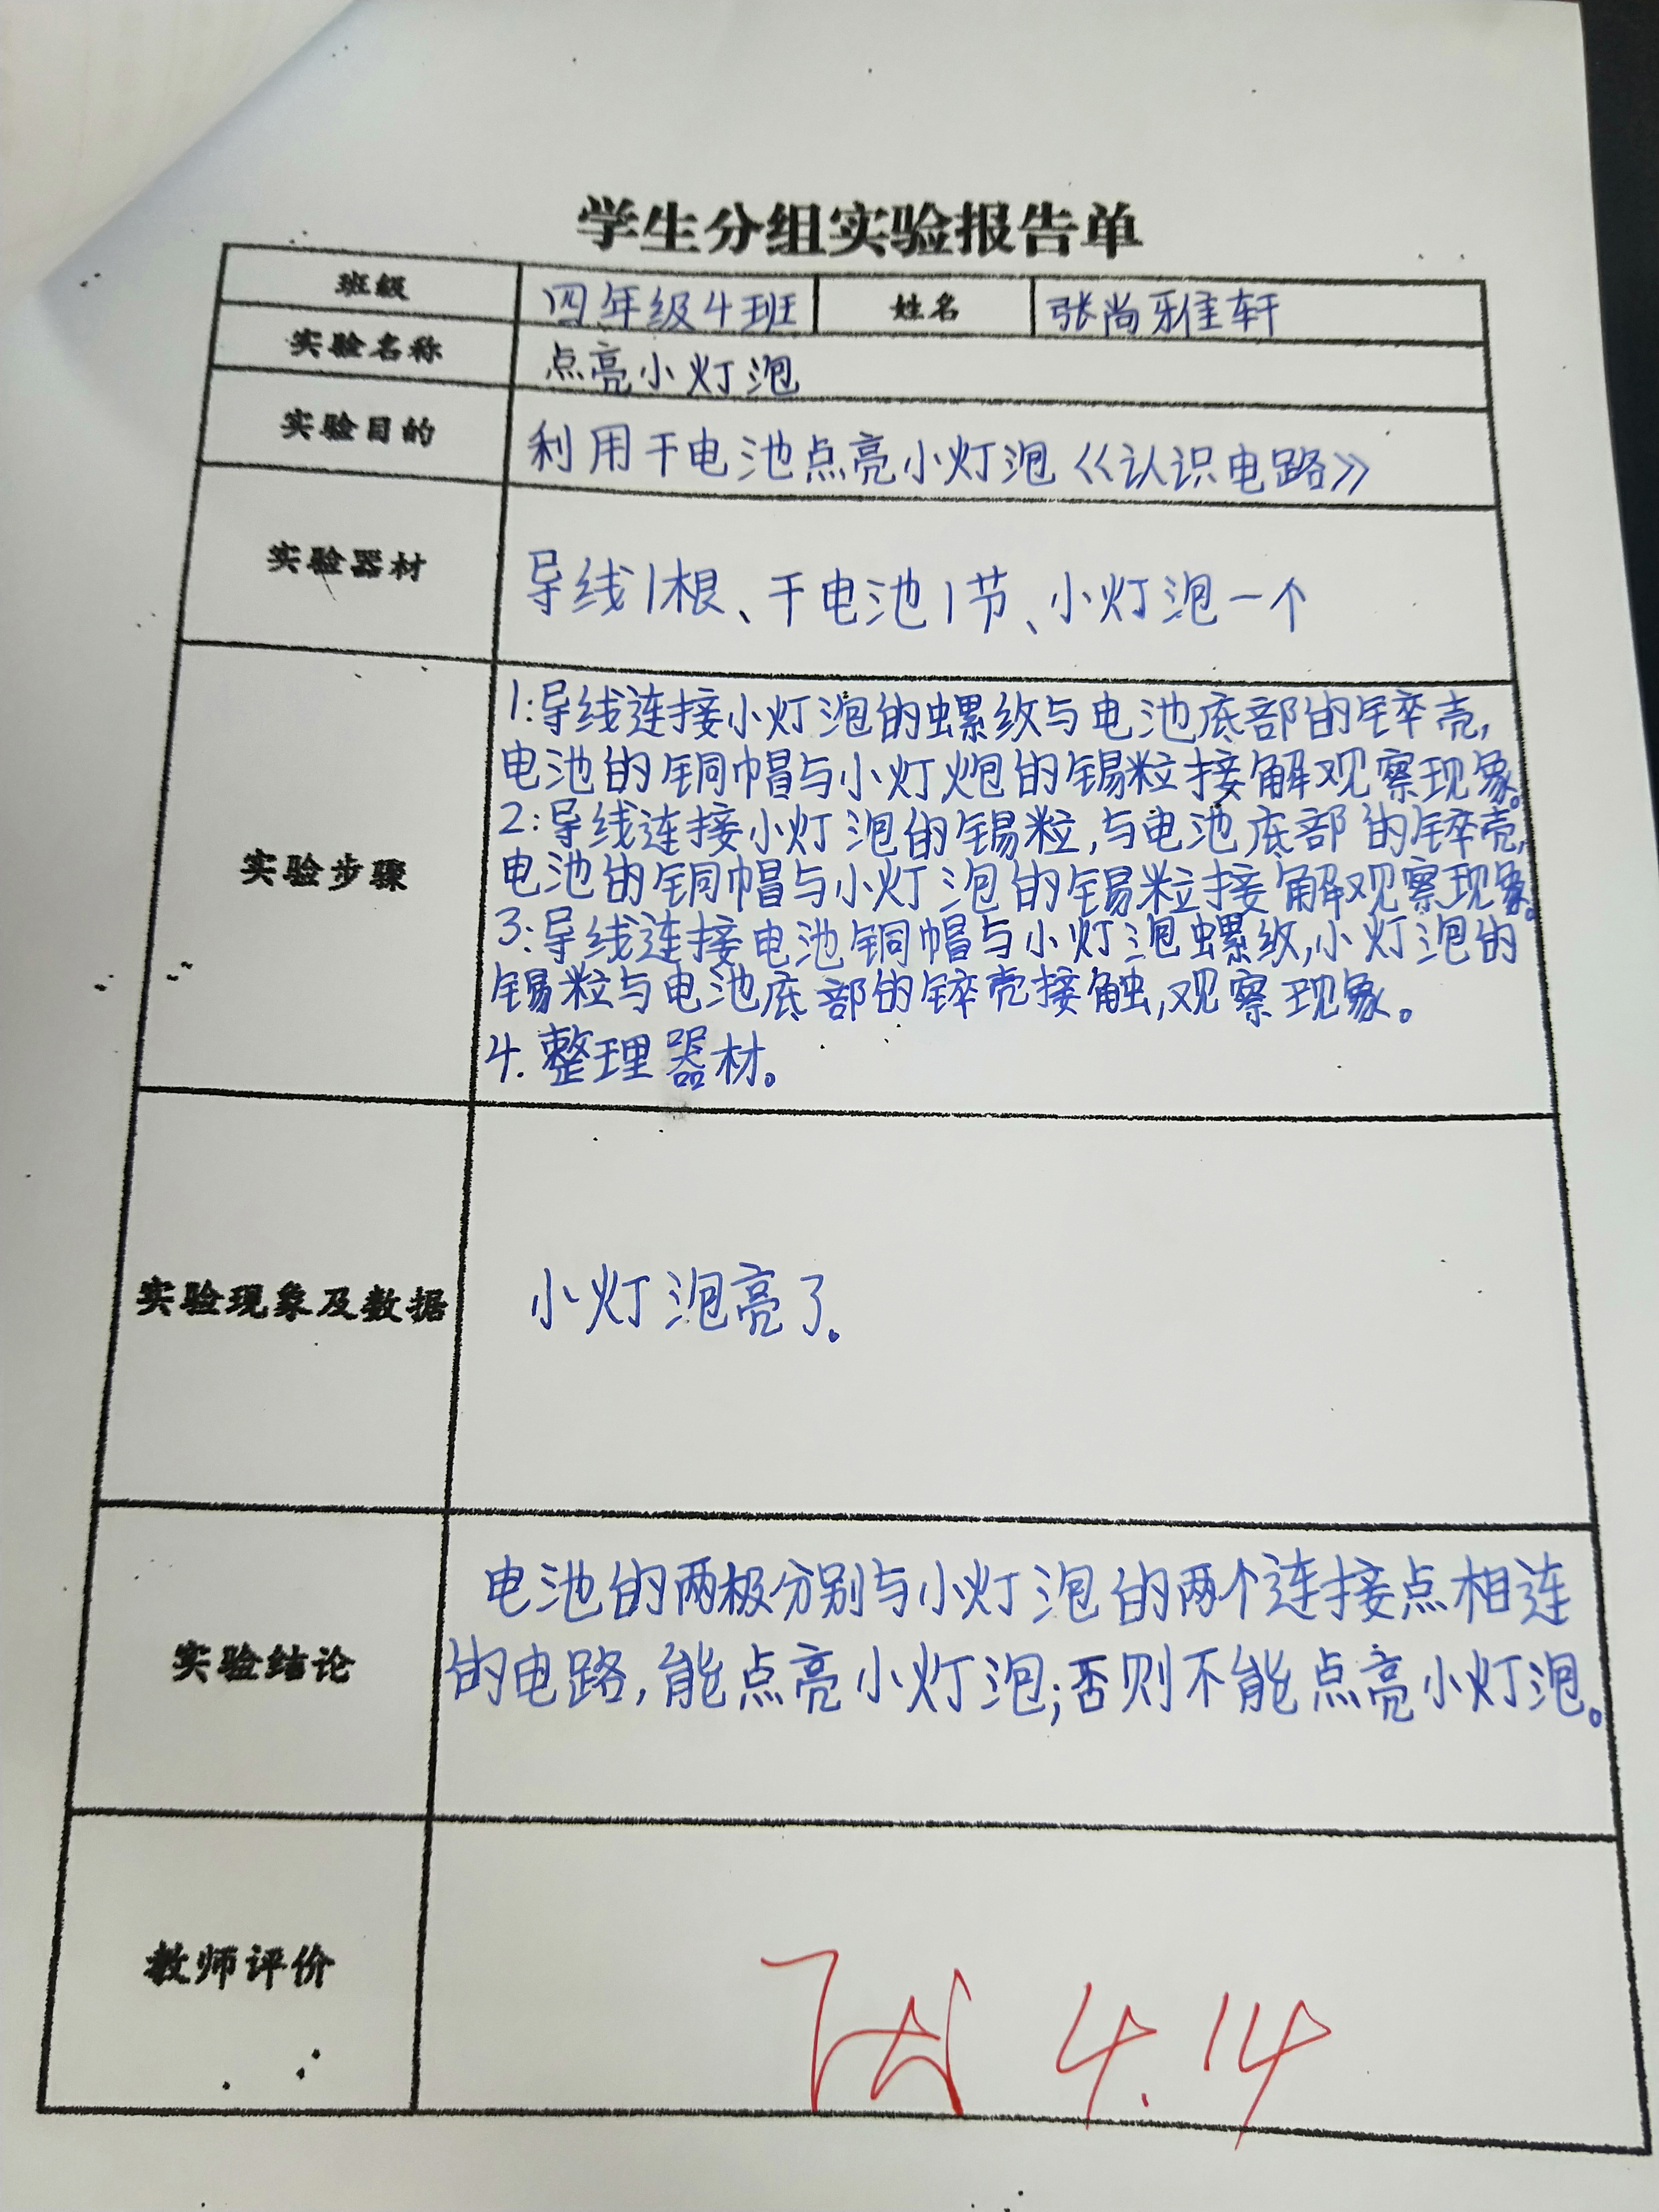 学生分组实验报告单
班级 四年级4班 姓名 张尚雅轩
实验名称 点亮小灯泡
实验目的 利用干电池点亮小灯泡《认识电路》
实验器材 导线1根、干电池1节、小灯泡一个
实验步骤
1:导线连接小灯泡的螺纹与电池底部的锌壳,
电池的铜帽与小灯炮的锡粒接解观察现象。
2:导线连接小灯泡的锡粒,与电池底部的锌壳,
电池的铜帽与小灯泡的锡粒接解观察现象。
3:导线连接电池铜帽与小灯泡螺纹,小灯泡的
锡粒与电池底部的锌壳接触,观察现象。
4.整理器材。
实验现象及数据 小灯泡亮了。
实验结论
电池的两极分别与小灯泡的两个连接点相连
的电路,能点亮小灯泡;否则不能点亮小灯泡。
教师评价 4.14